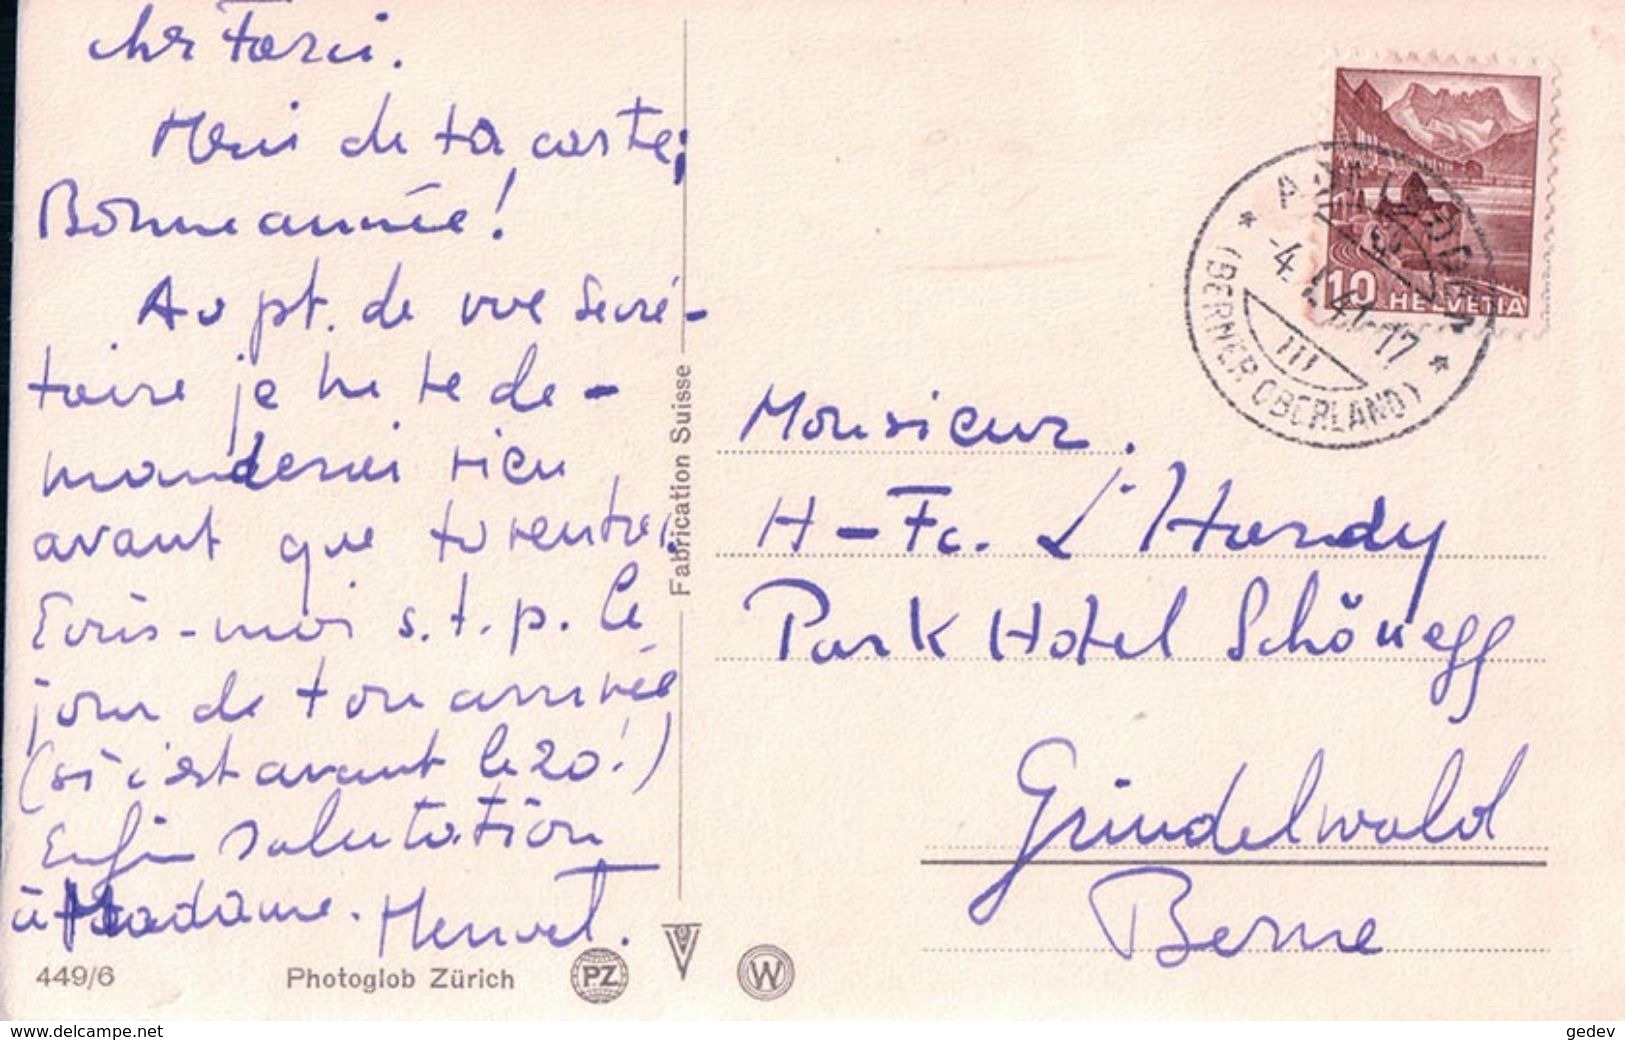 cher Fazui.
Merci de ta carte;
Bonne année!
Au pt. de vue secré-
taire je ne te de-
manderai rien
avant que tu rentres.
Ecris-moi s.t.p. le
jour de ton arrivée
(si c'est avant le 20!)
Enfin salutation
à Madame. Henvet.
449/6 Photoglob Zürich PZ W
Fabrication Suisse
10 HELVETIA
ADELBODEN
-4. I. 41-17
(BERNER OBERLAND)
Monsieur.
H-Fc. L'Hardy
Park Hotel Schönegg
Grindelwald
Berne
www.delcampe.net
gedev